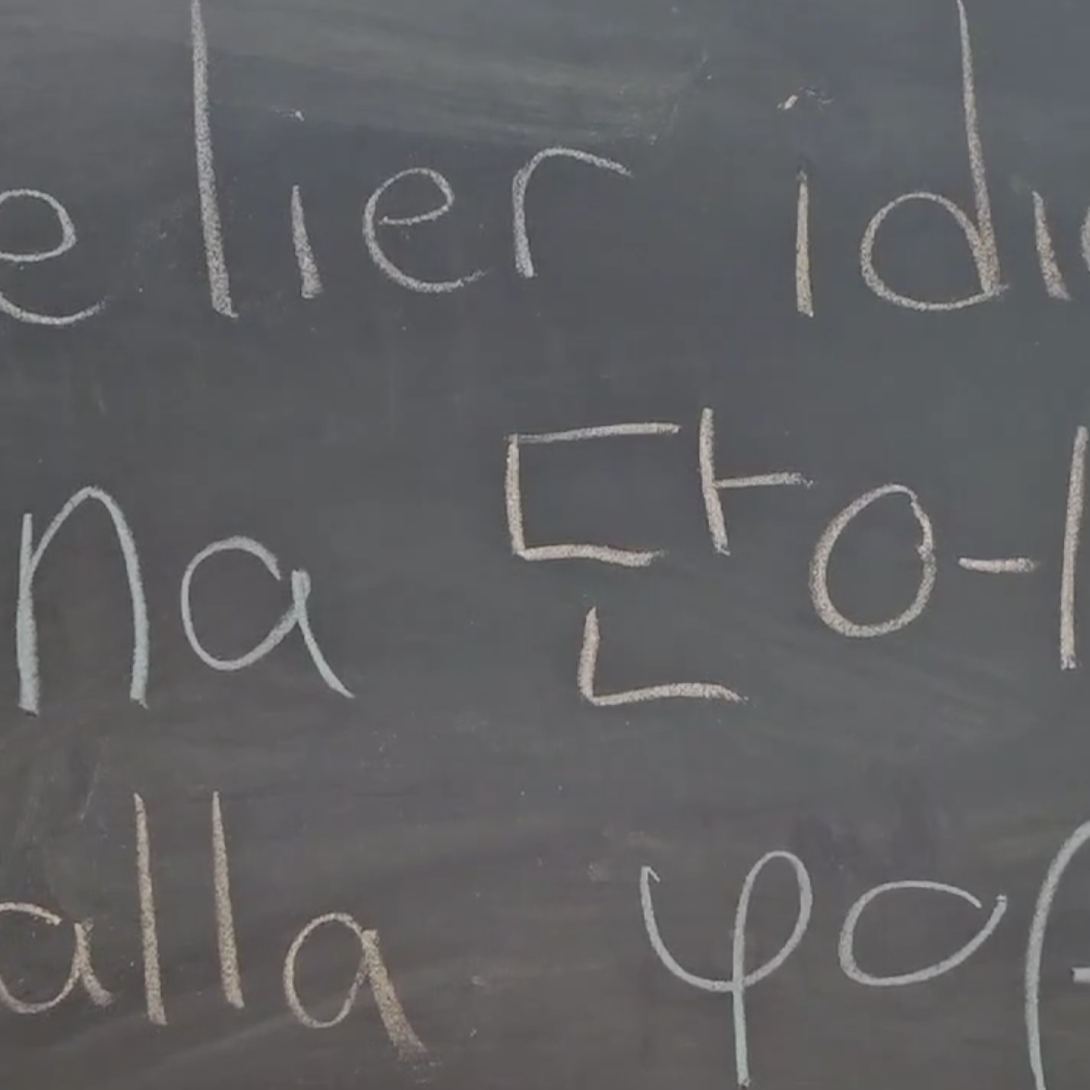 elier idi
na 단어
alla